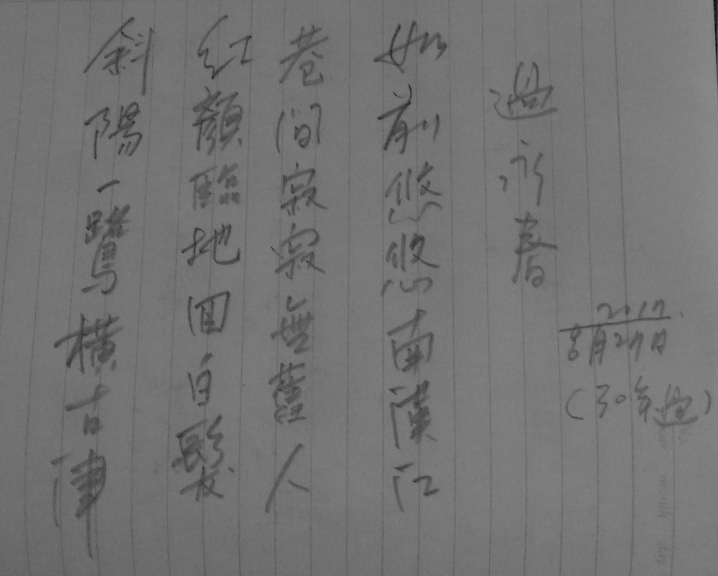 過永春
如前悠悠南漢江
巷間寂寂無舊人
紅顏臨地回白髮
斜陽一鷺橫古津
2017.
8月29日
(30年過)